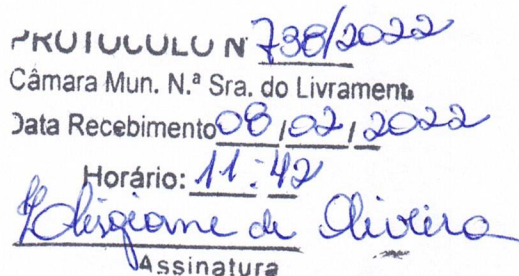 PROTOCOLO N 738/2022
Câmara Mun. N.ª Sra. do Livrament
Data Recebimento 08/02/2022
Horário: 11:42
de Oliveira
Assinatura